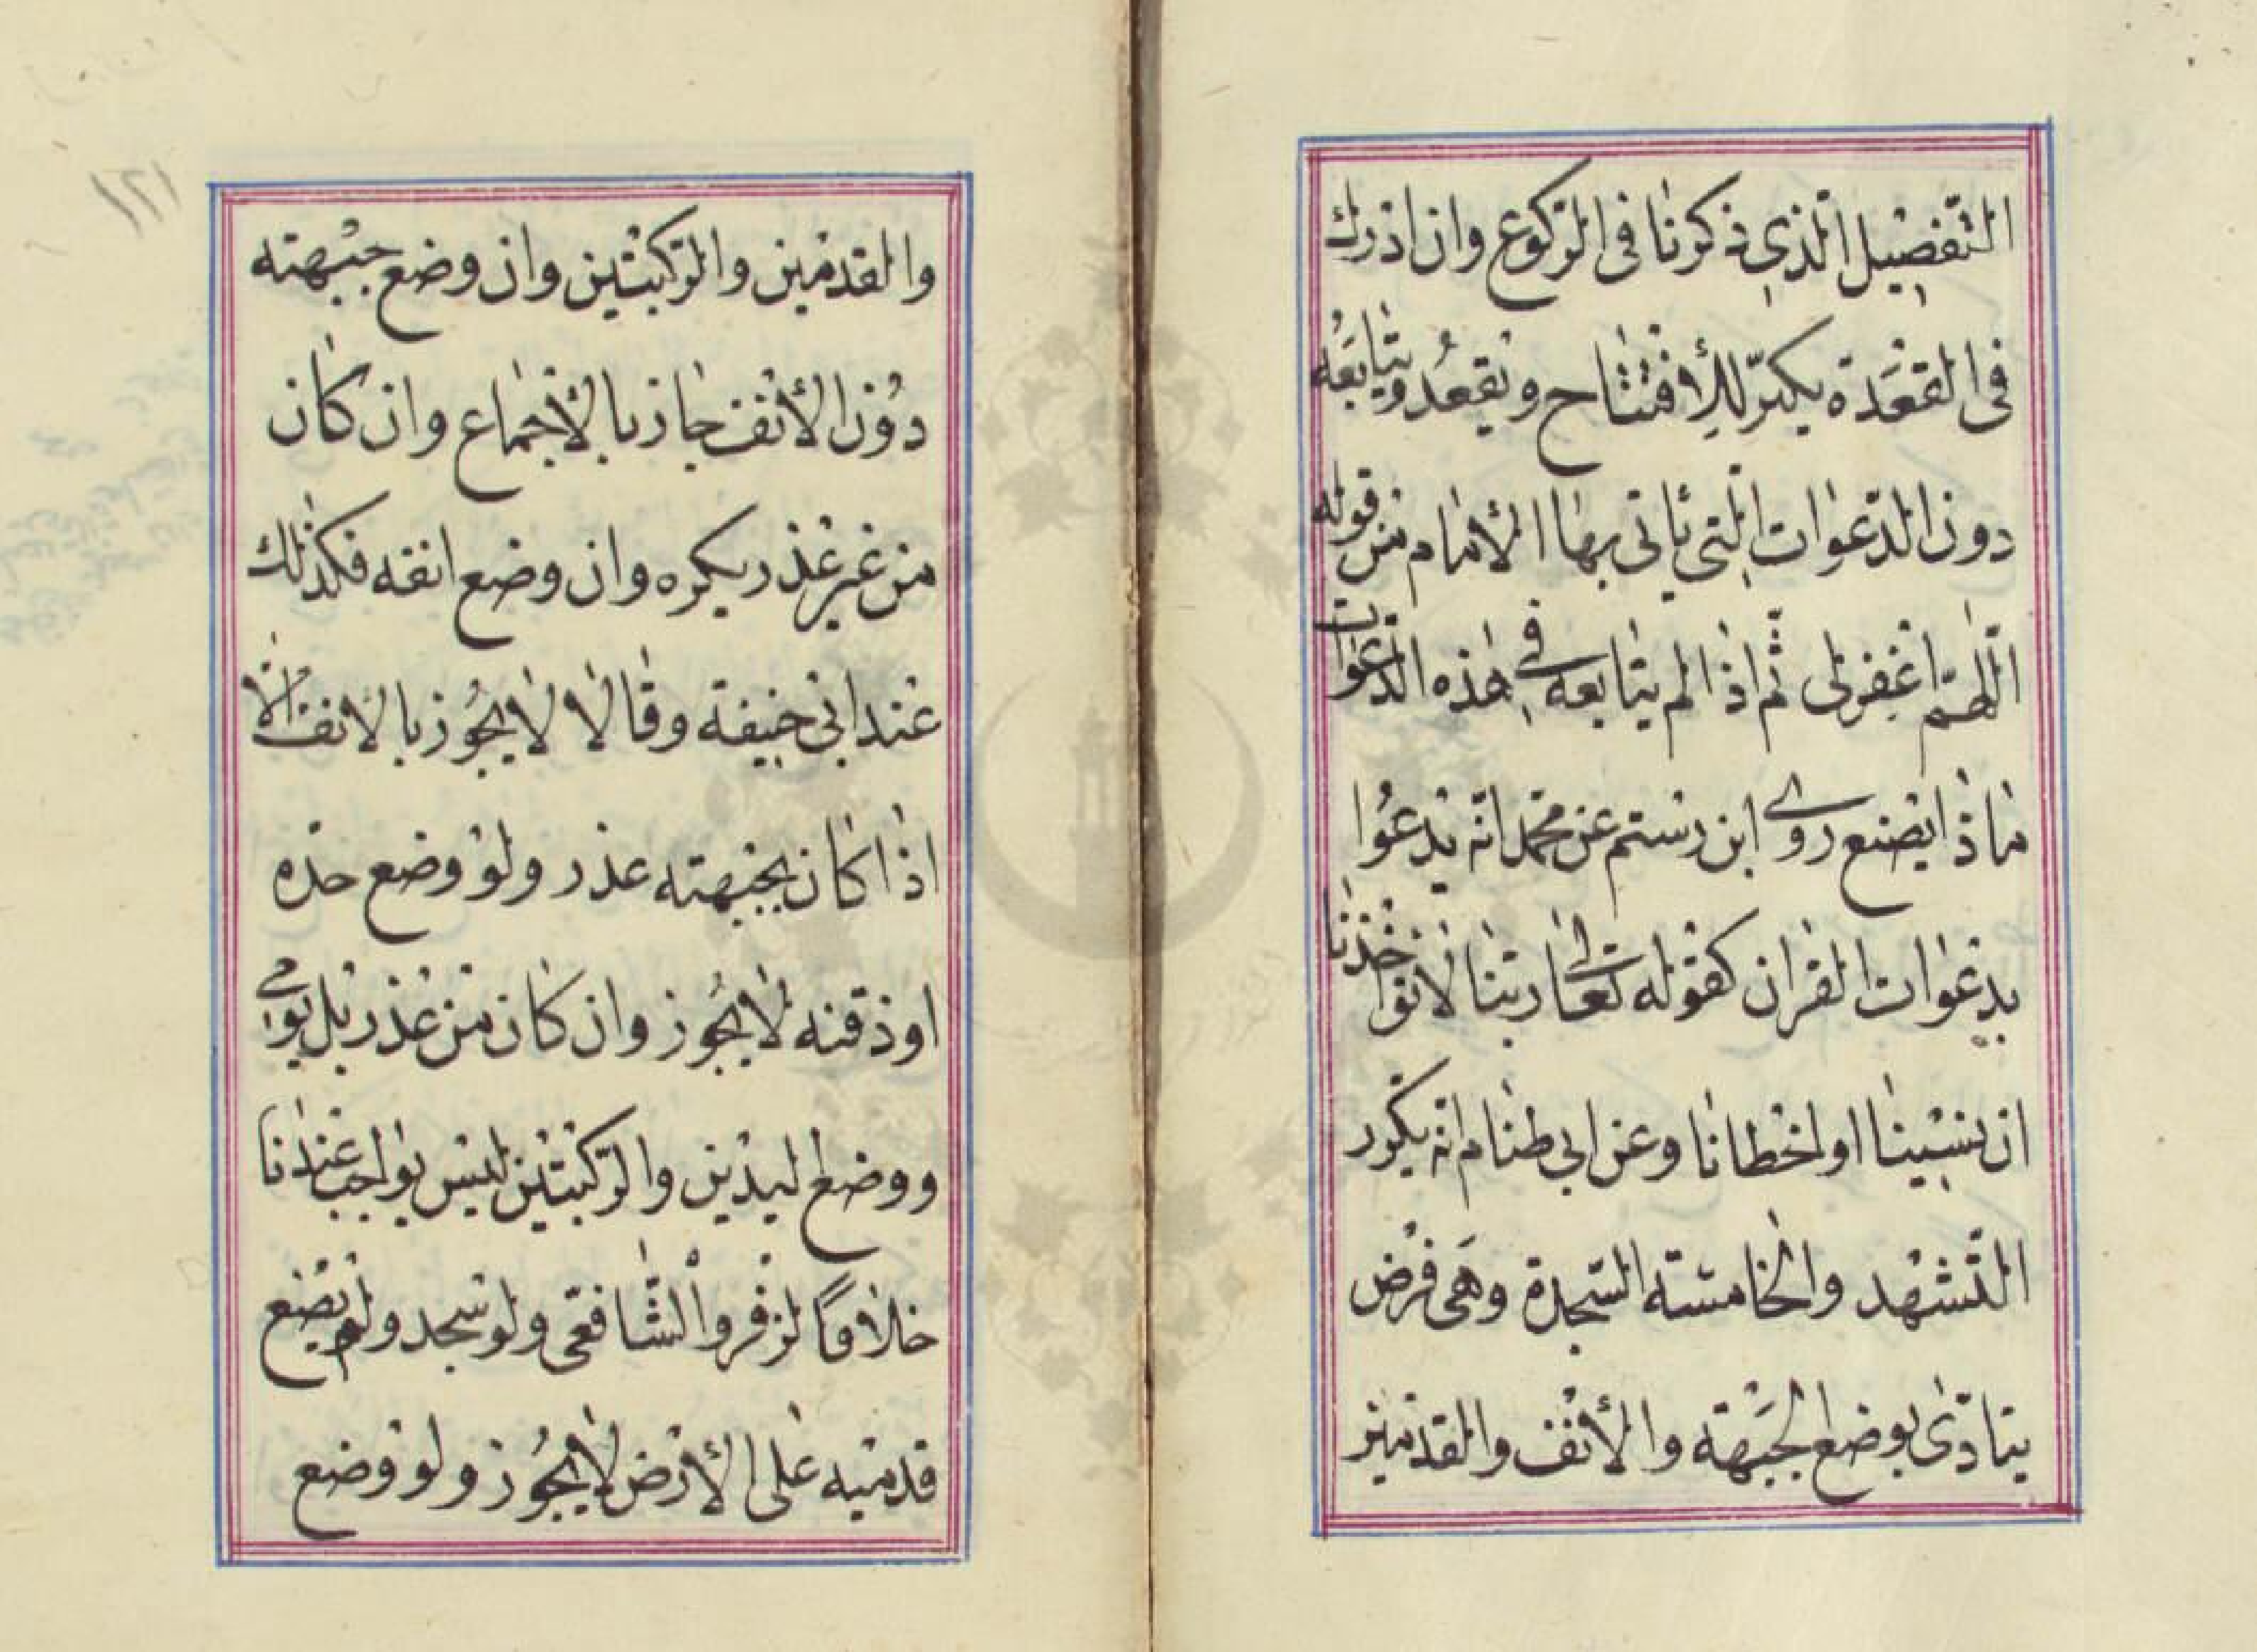 التّفصيل الّذي ذكرنا في الرّكوع وان ادرك
في القعدة يكبّر للأفتتاح ويقعد ويتابعه
دون الدّعوات الّتي يأتي بها الأمام من قوله
اللّهمّ اغفرلي ثمّ اذا لم يتابعه في هذه الدّعوات
ماذا يصنع روى ابن رستم عن محمّد انّه يدعوا
بدعوات القران كقوله تعالى ربّنا لا تواخذنا
ان نسينا او اخطانا وعن ابي طنام انّه يكرر
التّشهد والخامسة السّجدة وهي فرض
يتادّى بوضع الجبهة والأنف والقدمين
والقدمين والرّكبتين وان وضع جبهته
دون الأنف جاز بالأجماع وان كان
من غير عذر يكره وان وضع انفه فكذلك
عند ابي حنيفة وقالا لا يجوز بالانف الّا
اذا كان بجبهته عذر ولو وضع خدّه
او ذقنه لا يجوز وان كان من عذر بل يومي
ووضع اليدين والرّكبتين ليس بواجب عندنا
خلافًا لزفر والشّافعي ولو سجد ولم يضع
قدميه على الأرض لا يجوز ولو وضع
١٢١